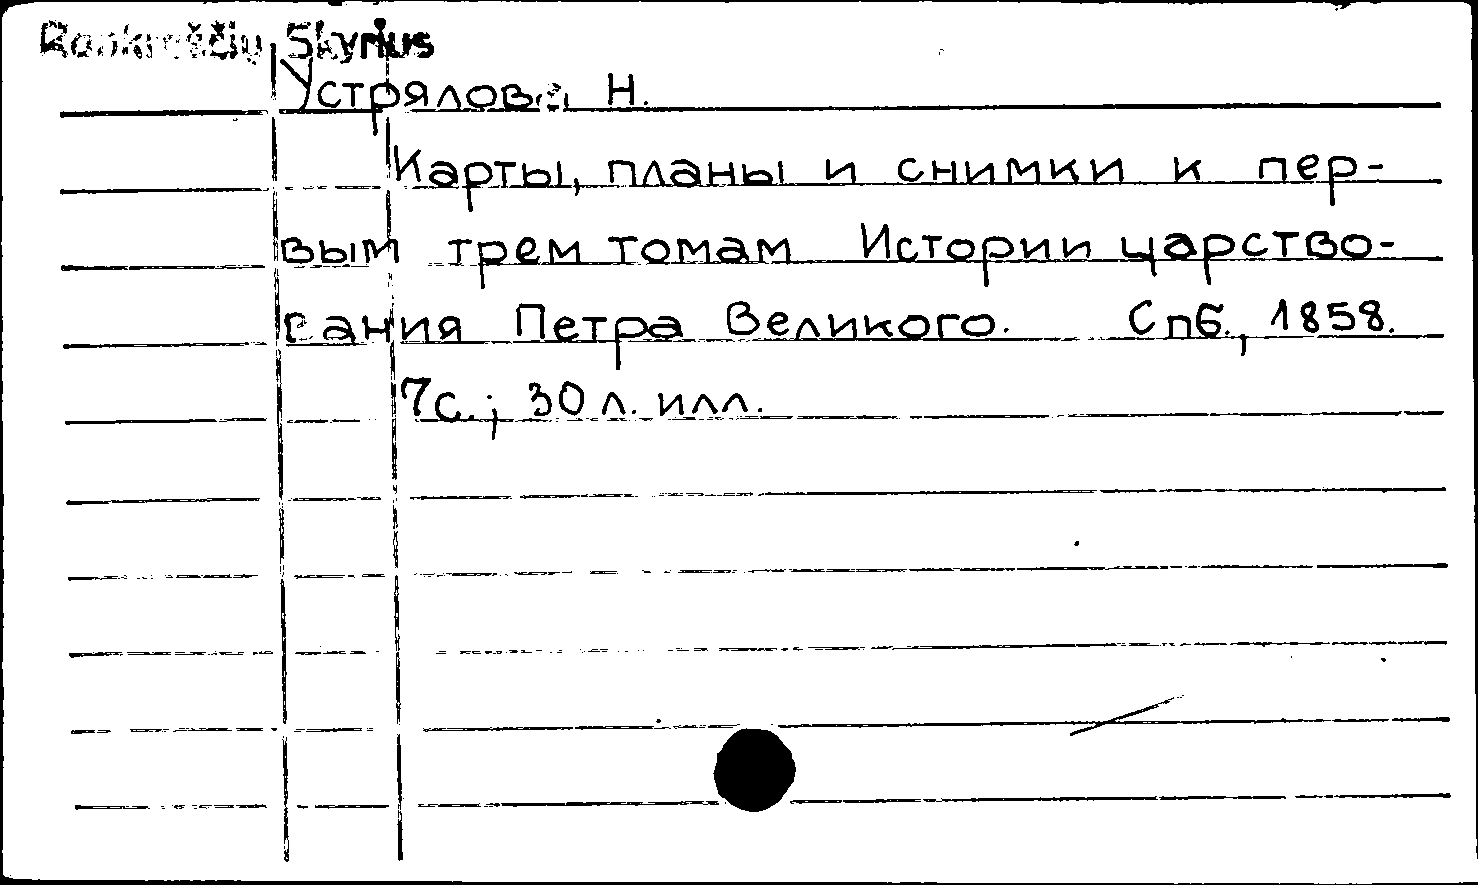 Rankraščių Skyrius
Устрялова Н.
Карты, планы и снимки к пер-
вым трем томам Истории царство-
вания Петра Великого. Спб., 1858.
7с.; 30 л. илл.